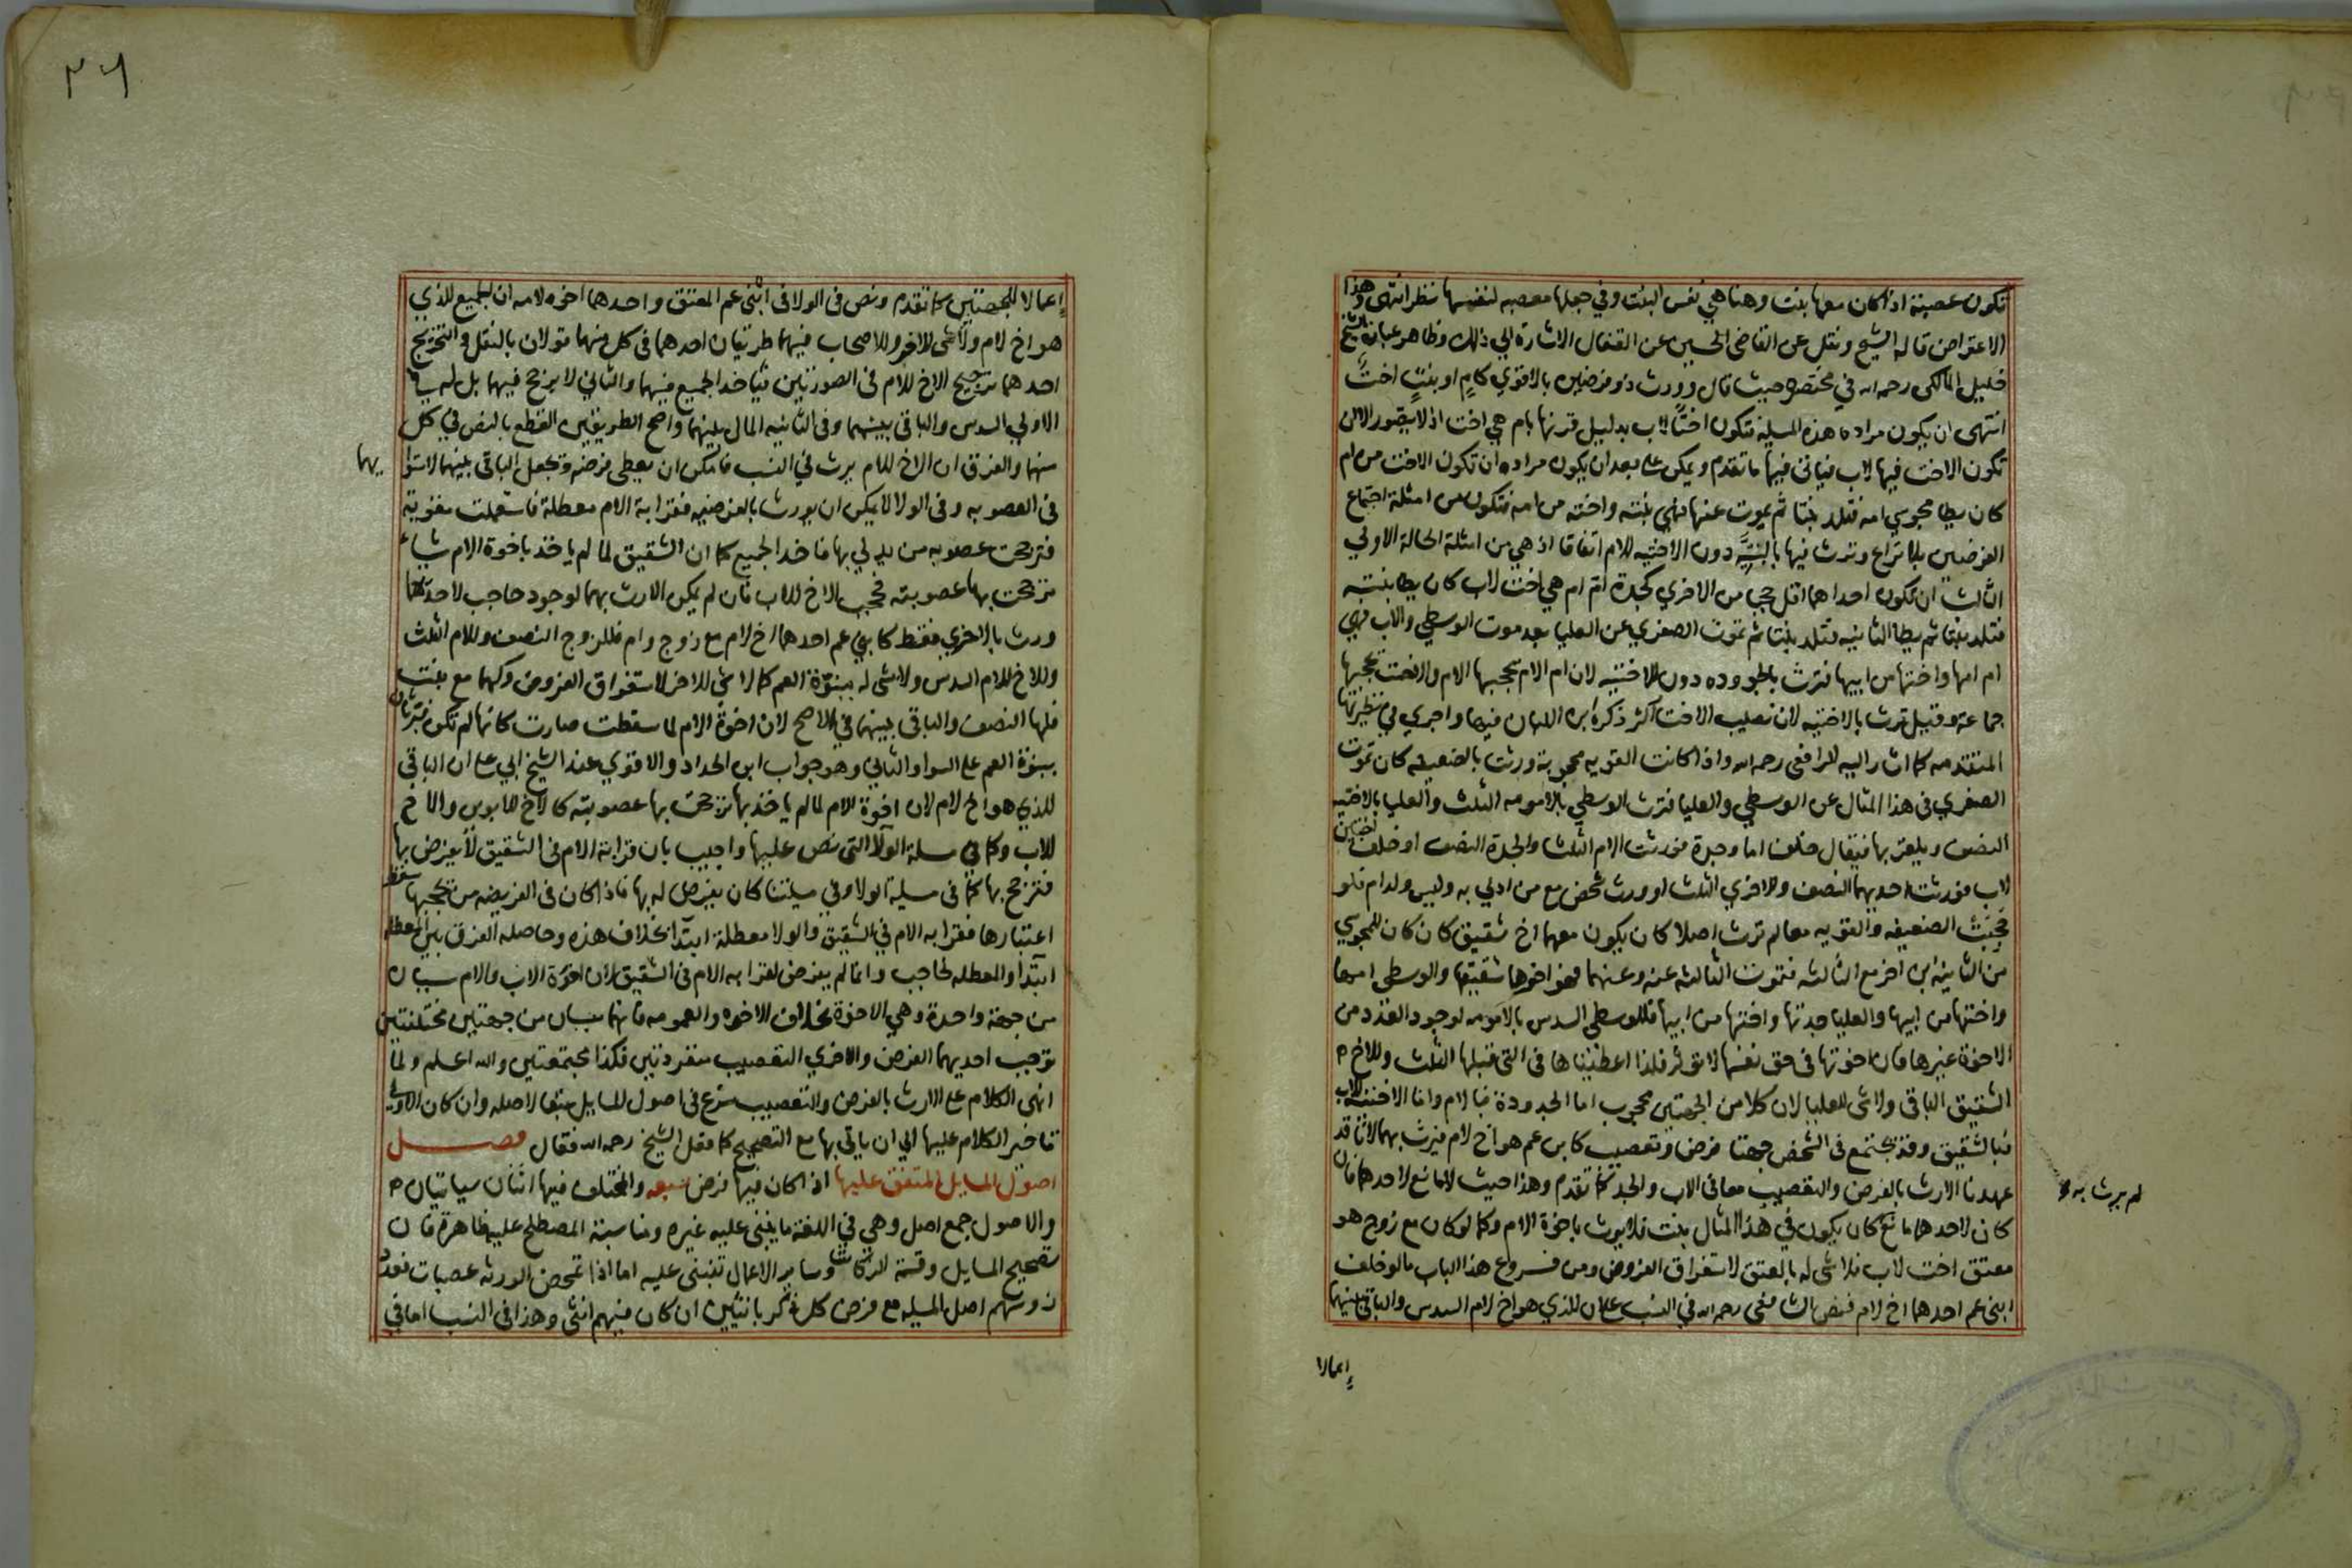 تكون عصبة اذا كان معها بنت وهنا هي نفس البنت وفي جعلها معصبه لنفسها نظر انتهى وهذا
الاعتراض قاله الشيخ ونقل عن القاضي الحسين عن القفال الاشارة الي ذلك وظاهر عبارة الشيخ
خليل المالكي رحمه الله في مختصره حيث قال وورث ذو فرضين بالاقوي كام او بنت اخت
انتهى ان يكون مراده هذه المسيلة فتكون اختًا لاب بدليل قرنها بام هي اخت اذ لا يتصور الا ان
تكون الاخت فيها لاب فياتي فيها ما تقدم ويمكن على بعد ان يكون مراده ان تكون الاخت من ام
كان يطا مجوسي امه فتلد بنتا ثم يموت عنها فهي بنته واخته من امه فتكون من امثلة اجتماع
الفرضين بلا نزاع وترث فيها بالبنتية دون الاختيه للام اتفاقا اذ هي من امثلة الحالة الاولي
الثالث ان تكون احداهما اقل حجبا من الاخري كجدة ام ام هي اخت لاب كان يطا بنته
فتلد بنتا ثم يطا الثانيه فتلد بنتا ثم تموت الصغري عن العليا بعد موت الوسطي والاب فهي
ام امها واختها من ابيها فترث بالجدوده دون الاختيه لان ام الام يحجبها الام والاخت يحجبها
جماعة وقيل ترث بالاختيه لان نصيب الاخت اكثر ذكره ابن اللبان فيها واجري في نظيرتها
المتقدمه كما اشار اليه الرافعي رحمه الله واذا كانت القويه محجوبة ورثت بالضعيفه كان تموت
الصغري في هذا المثال عن الوسطي والعليا فترث الوسطي بالامومه الثلث والعليا بالاختيه
النصف ويلغز بها فيقال خلف اما وجدة فورثت الام الثلث والجدة النصف او خلف اختين
لاب فورثت احديهما النصف والاخري الثلث او ورث شخص مع من ادلي به وليس ولد ام فلو
حجبت الضعيفه والقويه معا لم ترث اصلا كان يكون معهما اخ شقيق كان كان للمجوسي
من الثانيه ابن اخر مع الثالثه فتموت الثالثه عنه وعنهما فهو اخوها شقيقها والوسطي امها
واختها من ابيها والعليا جدتها واختها من ابيها فللوسطي السدس بالامومه لوجود العدد من
الاخوة غيرها فان اخوتها في حق نفسها لا تؤثر فلذا اعطيناها في التي قبلها الثلث وللاخ
الشقيق الباقي ولا شي للعليا لان كلا من الجهتين محجوب اما الجدودة فبالام واما الاختيه لاب
فبالشقيق وقد يجتمع في الشخص جهتا فرض وتعصيب كابن عم هو اخ لام فيرث بهما لانا قد
عهدنا الارث بالفرض والتعصيب معا في الاب والجد كما تقدم وهذا حيث لا مانع لاحدهما فان
كان لاحدهما مانع كان يكون في هذا المثال بنت فلا يرث باخوة الام وكما لو كان مع زوج هو
معتق اخت لاب فلا شي له بالعتق لاستغراق الفروض ومن فروع هذا الباب ما لو خلف
ابني عم احدهما اخ لام فنص الشافعي رحمه الله في النسب على ان للذي هو اخ لام السدس والباقي بينهما
لم يرث به
إعمالا
٣٦
إعمالا للجهتين كما تقدم ونص في الولا في ابني عم المعتق واحدهما اخوه لامه ان الجميع للذي
هو اخ لام ولا شي للاخر وللاصحاب فيهما طريقان احدهما في كل منهما قولان بالنقل والتخريج
احدهما ترجيح الاخ للام في الصورتين فياخد الجميع فيهما والثاني لا يرجح فيهما بل له في
الاولي السدس والباقي بينهما وفي الثانيه المال بينهما واصح الطريقين القطع بالنص في كل
منهما والفرق ان الاخ للام يرث في النسب فامكن ان يعطي فرضه ويجعل الباقي بينهما لاستوا يهما
في العصوبه وفي الولا لا يمكن ان يورث بالفرضيه فقرابة الام معطلة فاستعملت مقويه
فترجحت عصوبه من يدلي بها فاخد الجميع كما ان الشقيق لما لم ياخذ باخوة الام شيا
ترجحت بها عصوبته فحجب الاخ للاب فان لم يكن الارث بهما لوجود حاجب لاحديهما
ورث بالاخري فقط كابني عم احدهما اخ لام مع زوج وام فللزوج النصف وللام الثلث
وللاخ للام السدس ولا شي له ببنوة العم كما لا شي للاخر لاستغراق الفروض وكهما مع بنت
فلها النصف والباقي بينهما في الاصح لان اخوة الام لما سقطت صارت كانها لم تكن فيرثان
ببنوة العم على السوا والثاني وهو جواب ابن الحداد والاقوي عند الشيخ ابي علي ان الباقي
للذي هو اخ لام لان اخوة الام لما لم ياخذ بها ترجحت بها عصوبته كالاخ للابوين والاخ
للاب وكما في مسلة الولا التي نص عليها واجيب بان قرابة الام في الشقيق لا يفرض بها
فترجح بها كما في مسيلة الولا وفي مسيلتنا كان يفرض له بها فاذا كان في الفريضه من يحجبها سقط
اعتبارها فقرابه الام في الشقيق والولا معطلة ابتدآ بخلاف هذه وحاصله الفرق بين المعطله
ابتدآ والمعطله لحاجب وانما لم يفرض لقرابه الام في الشقيق لان اخوة الاب والام سببان
من جهة واحدة وهي الاخوة بخلاف الاخوه والعمومه فانهما سببان من جهتين مختلفتين
توجب احديهما الفرض والاخري التعصيب منفردتين فكذا مجتمعتين والله اعلم ولما
انهى الكلام على الارث بالفرض والتعصيب شرع في اصول المسايل متبعا لاصله وان كان الاولي
تاخير الكلام عليها الي ان ياتي بها مع التصحيح كما فعل الشيخ رحمه الله فقال فصل
اصول المسايل المتفق عليها اذا كان فيها فرض سبعه والمختلف فيها اثنان سياتيان
والاصول جمع اصل وهي في اللغة ما ينبني عليه غيره ومناسبة المصطلح عليه ظاهرة فان
تصحيح المسايل وقسمة التركات وساير الاعمال تنبني عليه اما اذا تمحض الورثه عصبات فعدد
رؤسهم اصل المسيله مع فرض كل ذكر بانثيين ان كان فيهم انثي وهذا في النسب اما في